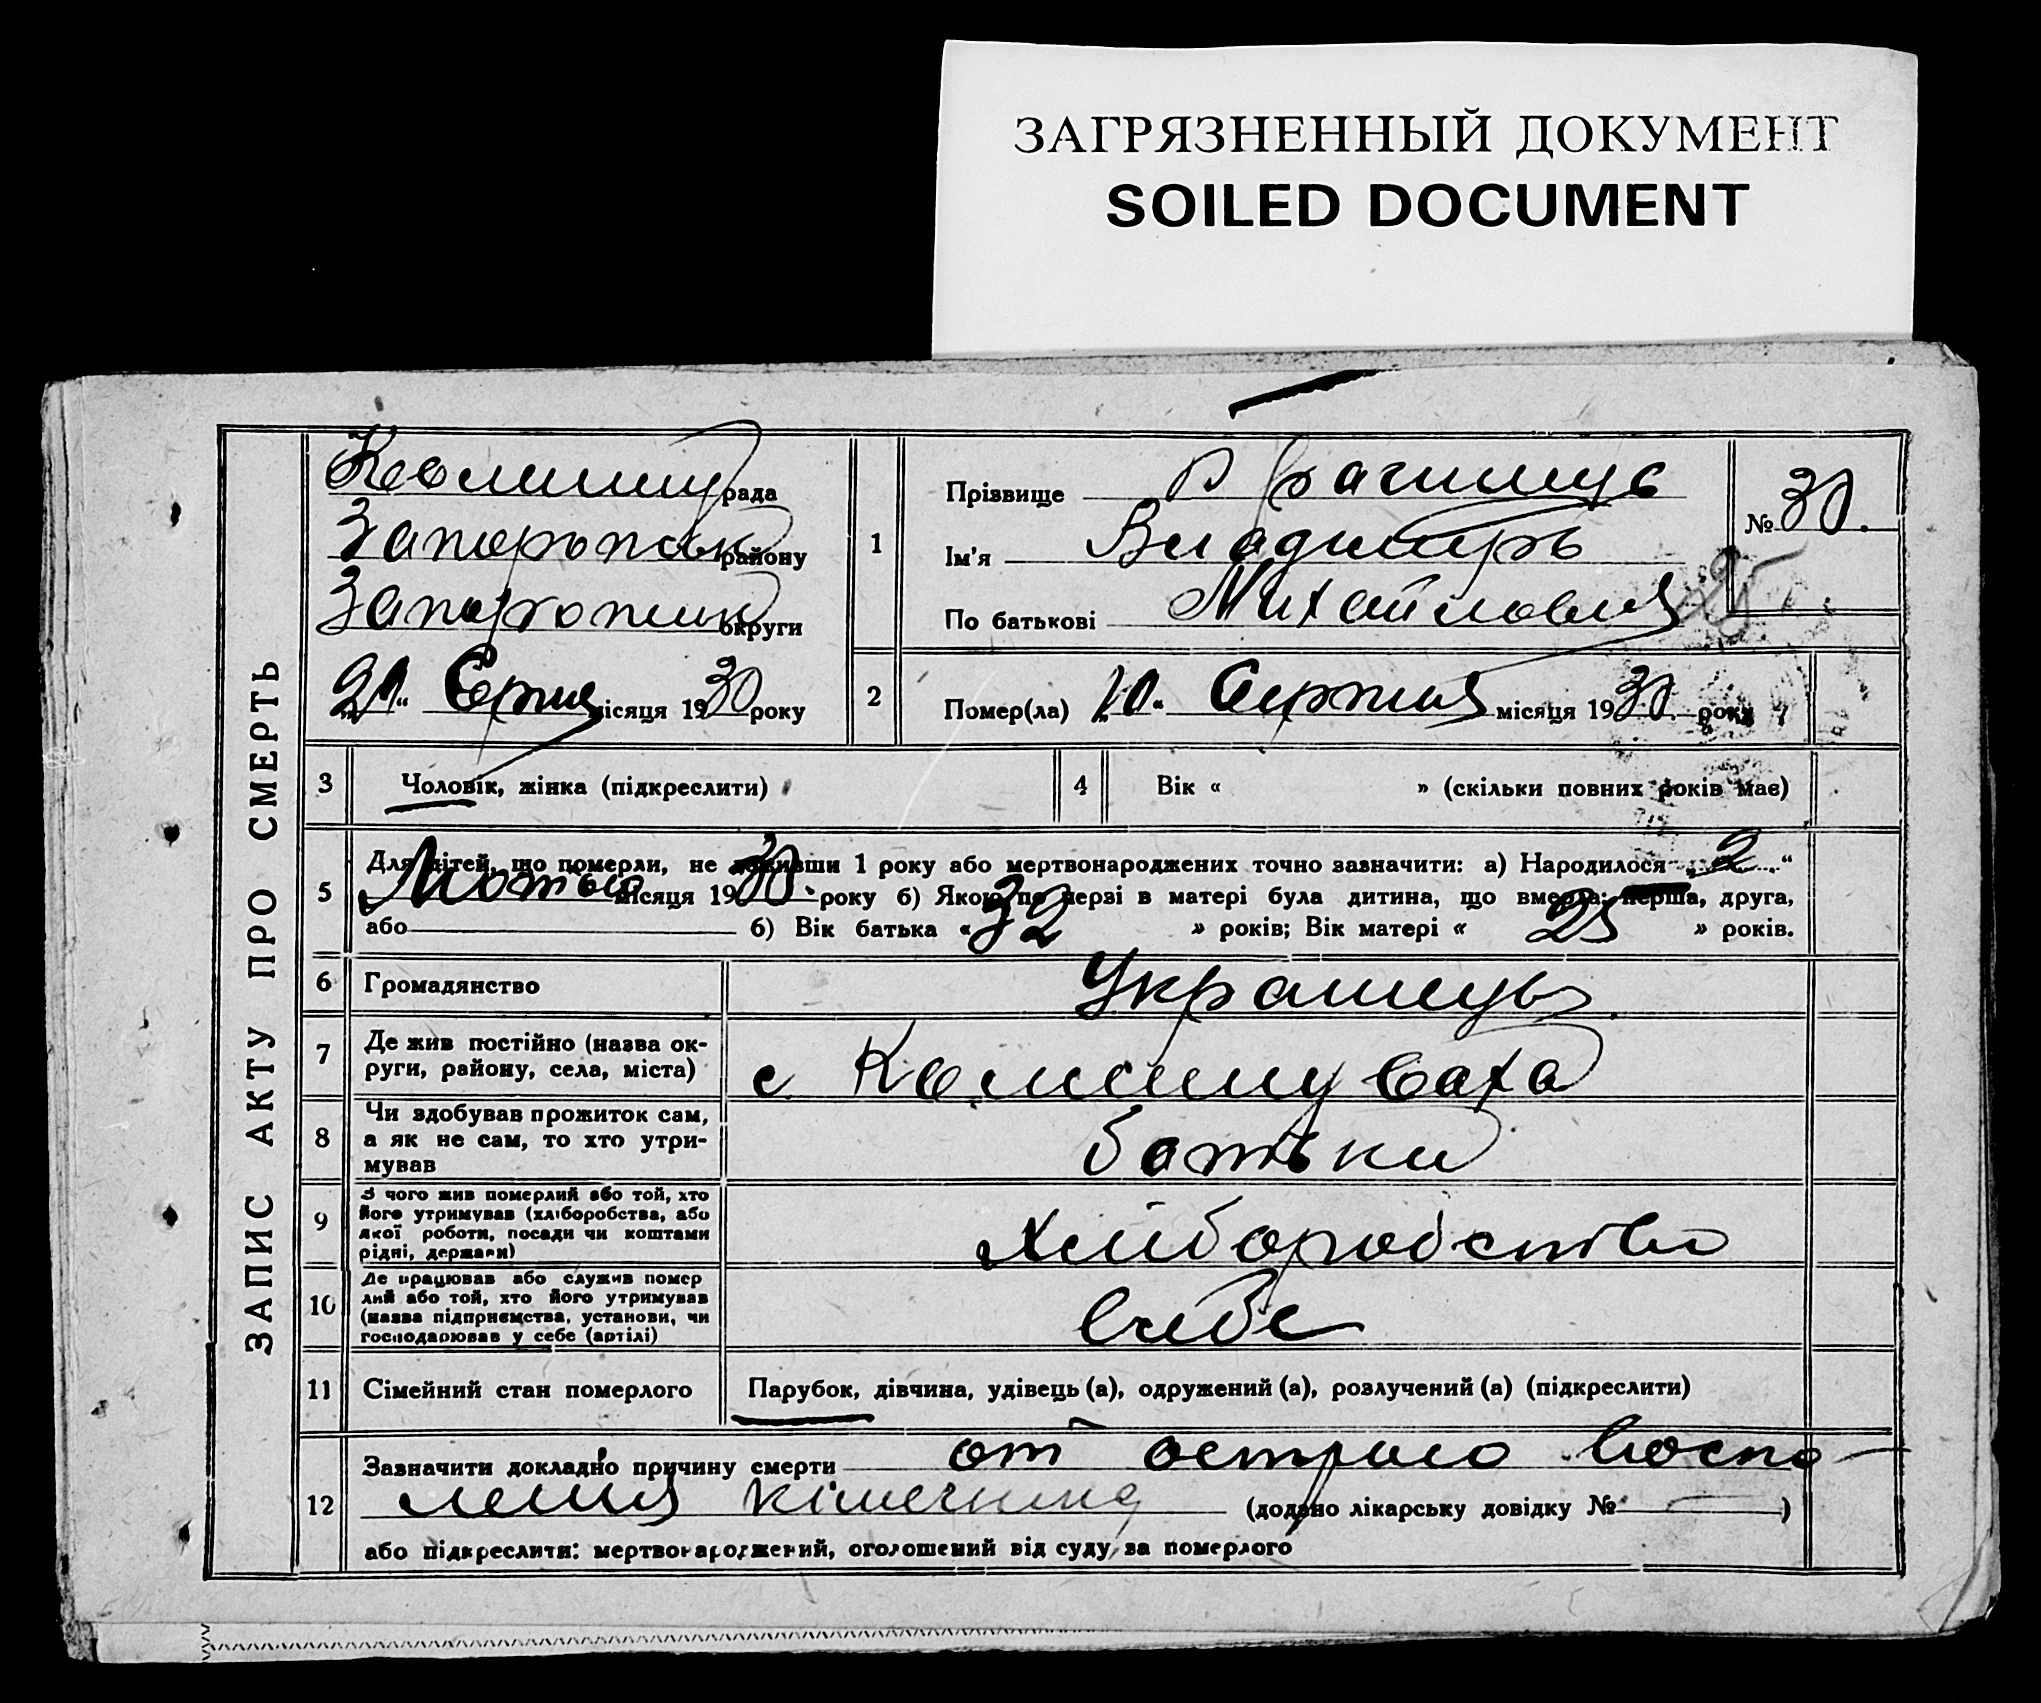 ЗАГРЯЗНЕННЫЙ ДОКУМЕНТ
SOILED DOCUMENT
ЗАПИС АКТУ ПРО СМЕРТЬ
рада
району
округи
„20“ Серпня місяця 1930 року
1
Прізвище
Ім'я Владимиръ
По батькові Михайлович
№ 30.
2
Помер(ла) „10“ Серпня місяця 1930. року
3 Чоловік, жінка (підкреслити)
4 Вік « » (скільки повних років має)
5 Для дітей, що померли, не доживши 1 року або мертвонароджених точно зазначити: а) Народилося „2“
місяця 1930. року б) Якою по черзі в матері була дитина, що вмерла: перша, друга,
або б) Вік батька « 32 » років; Вік матері « 25 » років.
6 Громадянство Украинец
7 Де жив постійно (назва ок-
руги, району, села, міста) с Комишуваха
8 Чи здобував прожиток сам,
а як не сам, то хто утри-
мував батьки
9 З чого жив померлий або той, хто
його утримував (хліборобства, або
якої роботи, посади чи коштами
рідні, держави) Хліборобство
10 Де працював або служив помер
лий або той, хто його утримував
(назва підприємства, установи, чи
господарював у себе (артілі) в себе
11 Сімейний стан померлого Парубок, дівчина, удівець (а), одружений (а), розлучений (а) (підкреслити)
12 Зазначити докладно причину смерти от острого воспо-
ления кішечника (додано лікарську довідку № )
або підкреслити: мертвонароджений, оголошений від суду за померлого